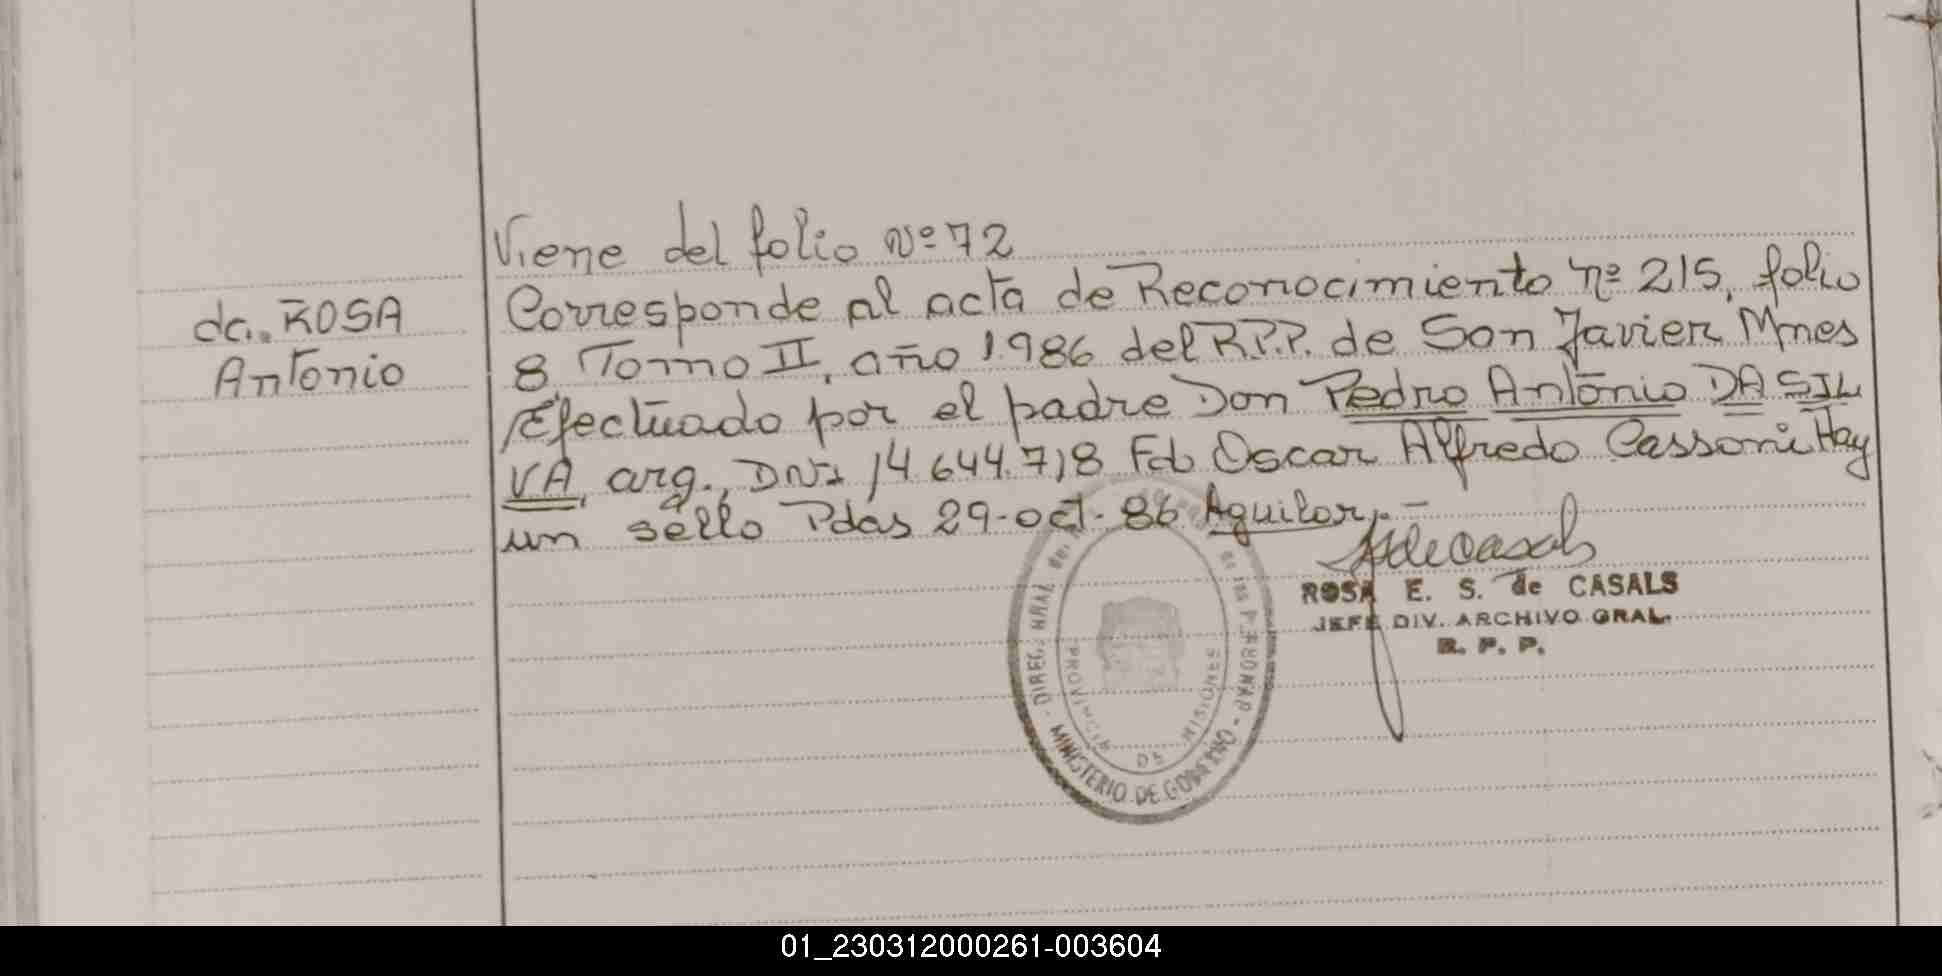 Viene del folio Nº 72
da. ROSA
Antonio
Corresponde al acta de Reconocimiento nº 215, folio
8 Tomo II, año 1.986 del R.P.P. de San Javier Mnes
Efectuado por el padre Don Pedro Antonio DA SIL
VA, arg., DNI 14.644.718 Fdo Oscar Alfredo Cassoni Hay
un sello Pdas 29-oct-86 Aguilar.-
ROSA E. S. de CASALS
JEFE DIV. ARCHIVO GRAL.
R. P. P.
DIREC. GRAL. del de las PERSONAS
MINISTERIO DE GOBIERNO
PROVINCIA DE MISIONES
01_230312000261-003604